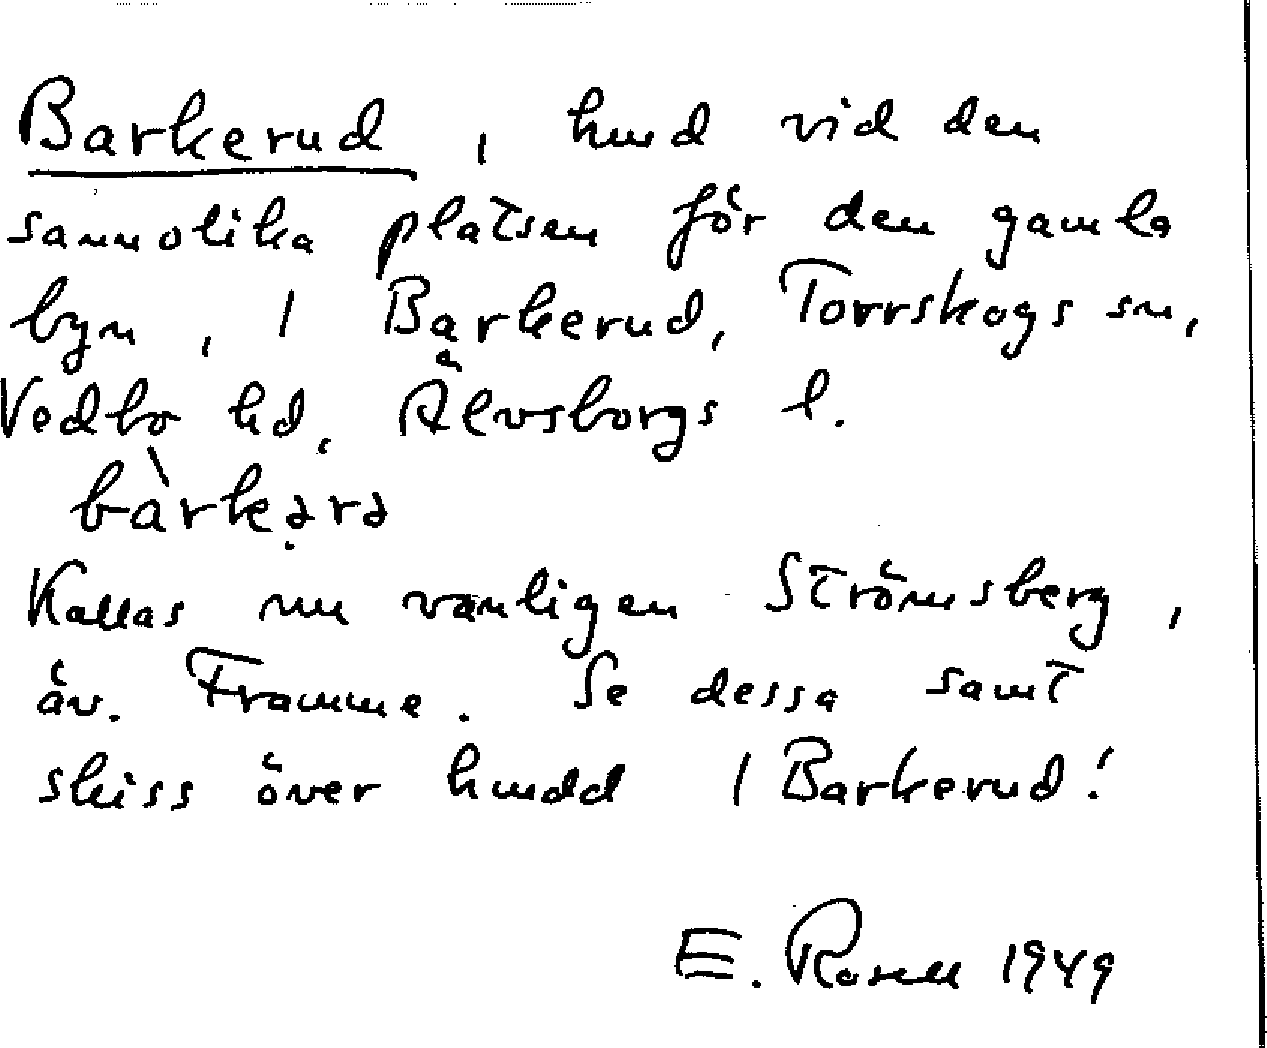 Barkerud, hmd vid den
sannolika platsen för den gamla
byn, 1 Barkerud, Torrskogs sn,
Vedbo hd, Älvsborgs l.
bàrkərə
Kallas nu vanligen Strömsberg,
äv. Framme. Se dessa samt
skiss över hmdd 1 Barkerud!
E. Rosell 1949